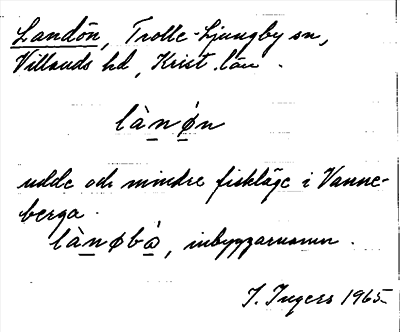 Landön, Trolle-Ljungby sn,
Villands hd, Krist. län.
là̱n ǿ̱n
udde och mindre fiskläge i Vanne-
berga.
là̱nøbå̱, inbyggarnamn.
I. Ingers 1965